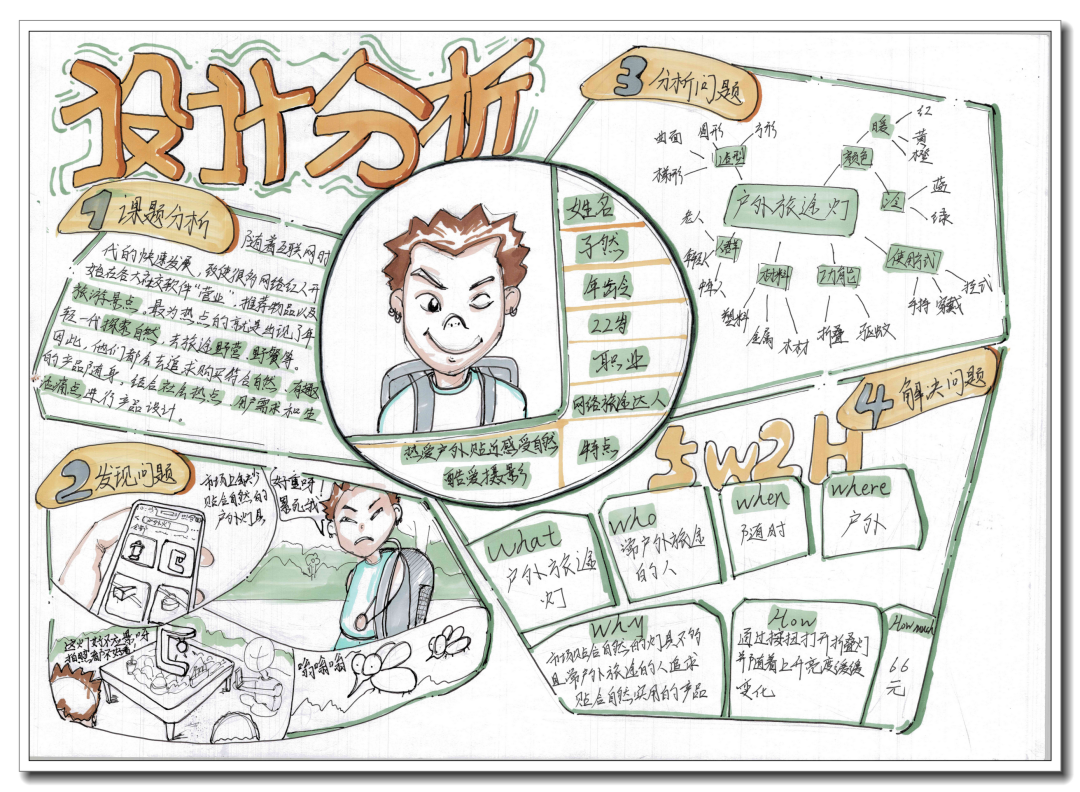 设计分析
1 课题分析
随着互联网时
代的快速发展，致使很多网络红人开
始在各大社交软件“营业”，推荐物品以及
旅游景点。最为热点的就是出现了年
轻一代探索自然，去旅途野营，野餐等。
因此，他们都会去追求购买符合自然、有趣
的产品随身，结合社会热点，用户需求和生
活痛点进行产品设计。
姓名
子然
年龄
22岁
职业
网络旅途达人
特点
热爱户外贴近感受自然
酷爱摄影
2 发现问题
市场上缺少
贴合自然的
户外灯具
好重呀
累死我
拍照都不好看
嗡嗡嗡
3 分析问题
户外旅途灯
造型
曲面
圆形
方形
梯形
颜色
暖
红
黄
橙
冷
蓝
绿
人群
老人
年轻人
中年人
材料
塑料
金属
木材
功能
折叠
驱蚊
使用方式
手持
穿戴
挂式
4 解决问题
5W2H
What
户外旅途
灯
Who
常户外旅途
的人
when
随时
where
户外
Why
市场贴合自然的灯具不够
且常户外旅途的人追求
贴合自然实用的产品
How
通过按扭打开折叠灯
并随着上升亮度缓缓
变化
How much
66
元